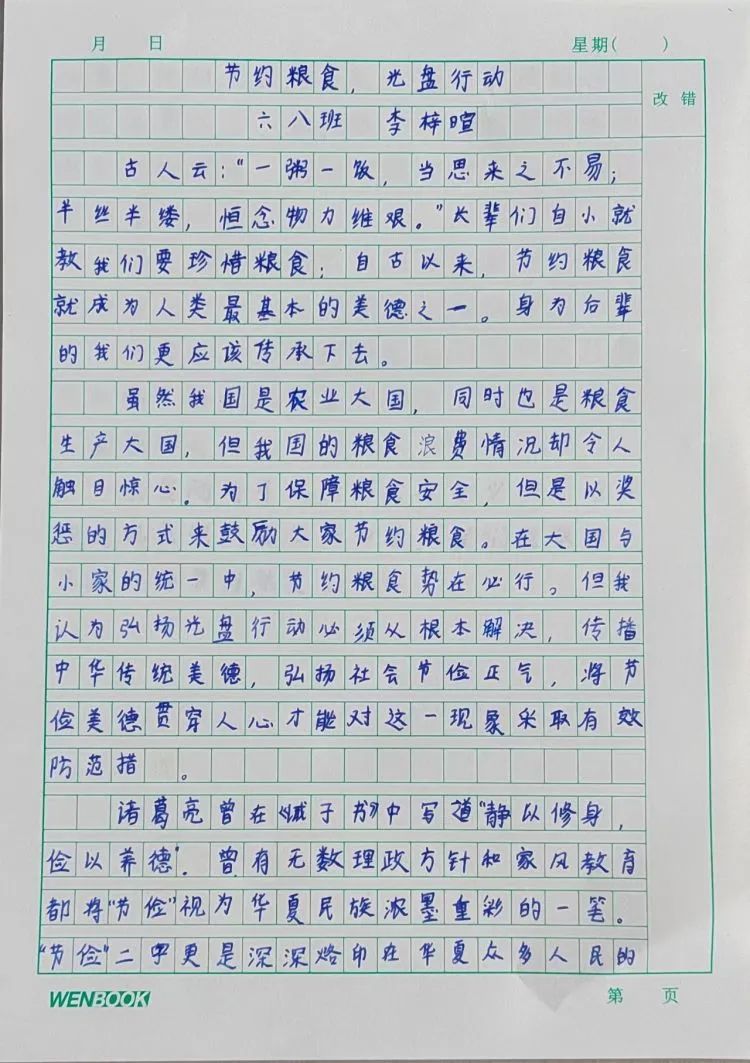 月 日 星期( )
节约粮食，光盘行动
改错
六八班 李梓暄
古人云：“一粥一饭，当思来之不易；
半丝半缕，恒念物力维艰。”长辈们自小就
教我们要珍惜粮食；自古以来，节约粮食
就成为人类最基本的美德之一。身为后辈
的我们更应该传承下去。
虽然我国是农业大国，同时也是粮食
生产大国，但我国的粮食浪费情况却令人
触目惊心。为了保障粮食安全，但是以奖
惩的方式来鼓励大家节约粮食。在大国与
小家的统一中，节约粮食势在必行。但我
认为弘扬光盘行动必须从根本解决，传播
中华传统美德，弘扬社会节俭正气，将节
俭美德贯穿人心才能对这一现象采取有效
防范措 。
诸葛亮曾在《诫子书》中写道“静以修身，
俭以养德”。曾有无数理政方针和家风教育
都将“节俭”视为华夏民族浓墨重彩的一笔。
“节俭”二字更是深深烙印在华夏众多人民的
WENBOOK 第 页